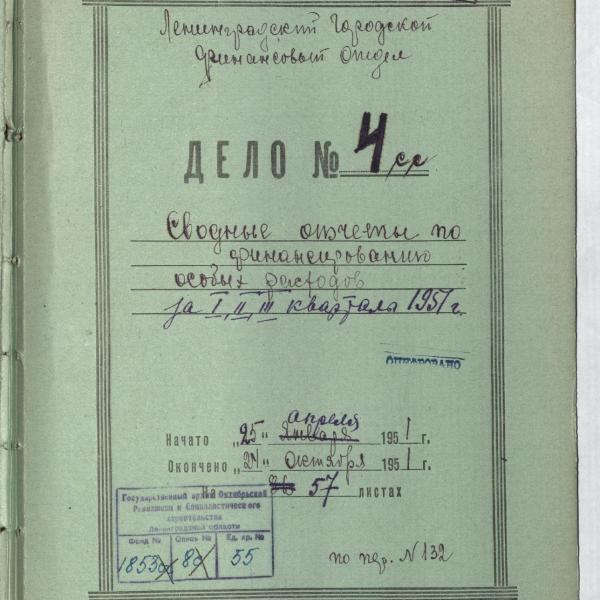 Ленинградский Городской
Финансовый отдел
ДЕЛО № 4 сс
Сводные отчеты по
финансированию
особых расходов
за I, II, III квартала 1951 г.
ОЦИФРОВАНО
апреля
Начато „25“ января 1951 г.
Окончено „27“ октября 1951 г.
На 57 листах
Государственный архив Октябрьской
Революции и Социалистического
строительства
Ленинградской области
Фонд № Опись № Ед. хр. №
1853 8 55
по пер. N 132